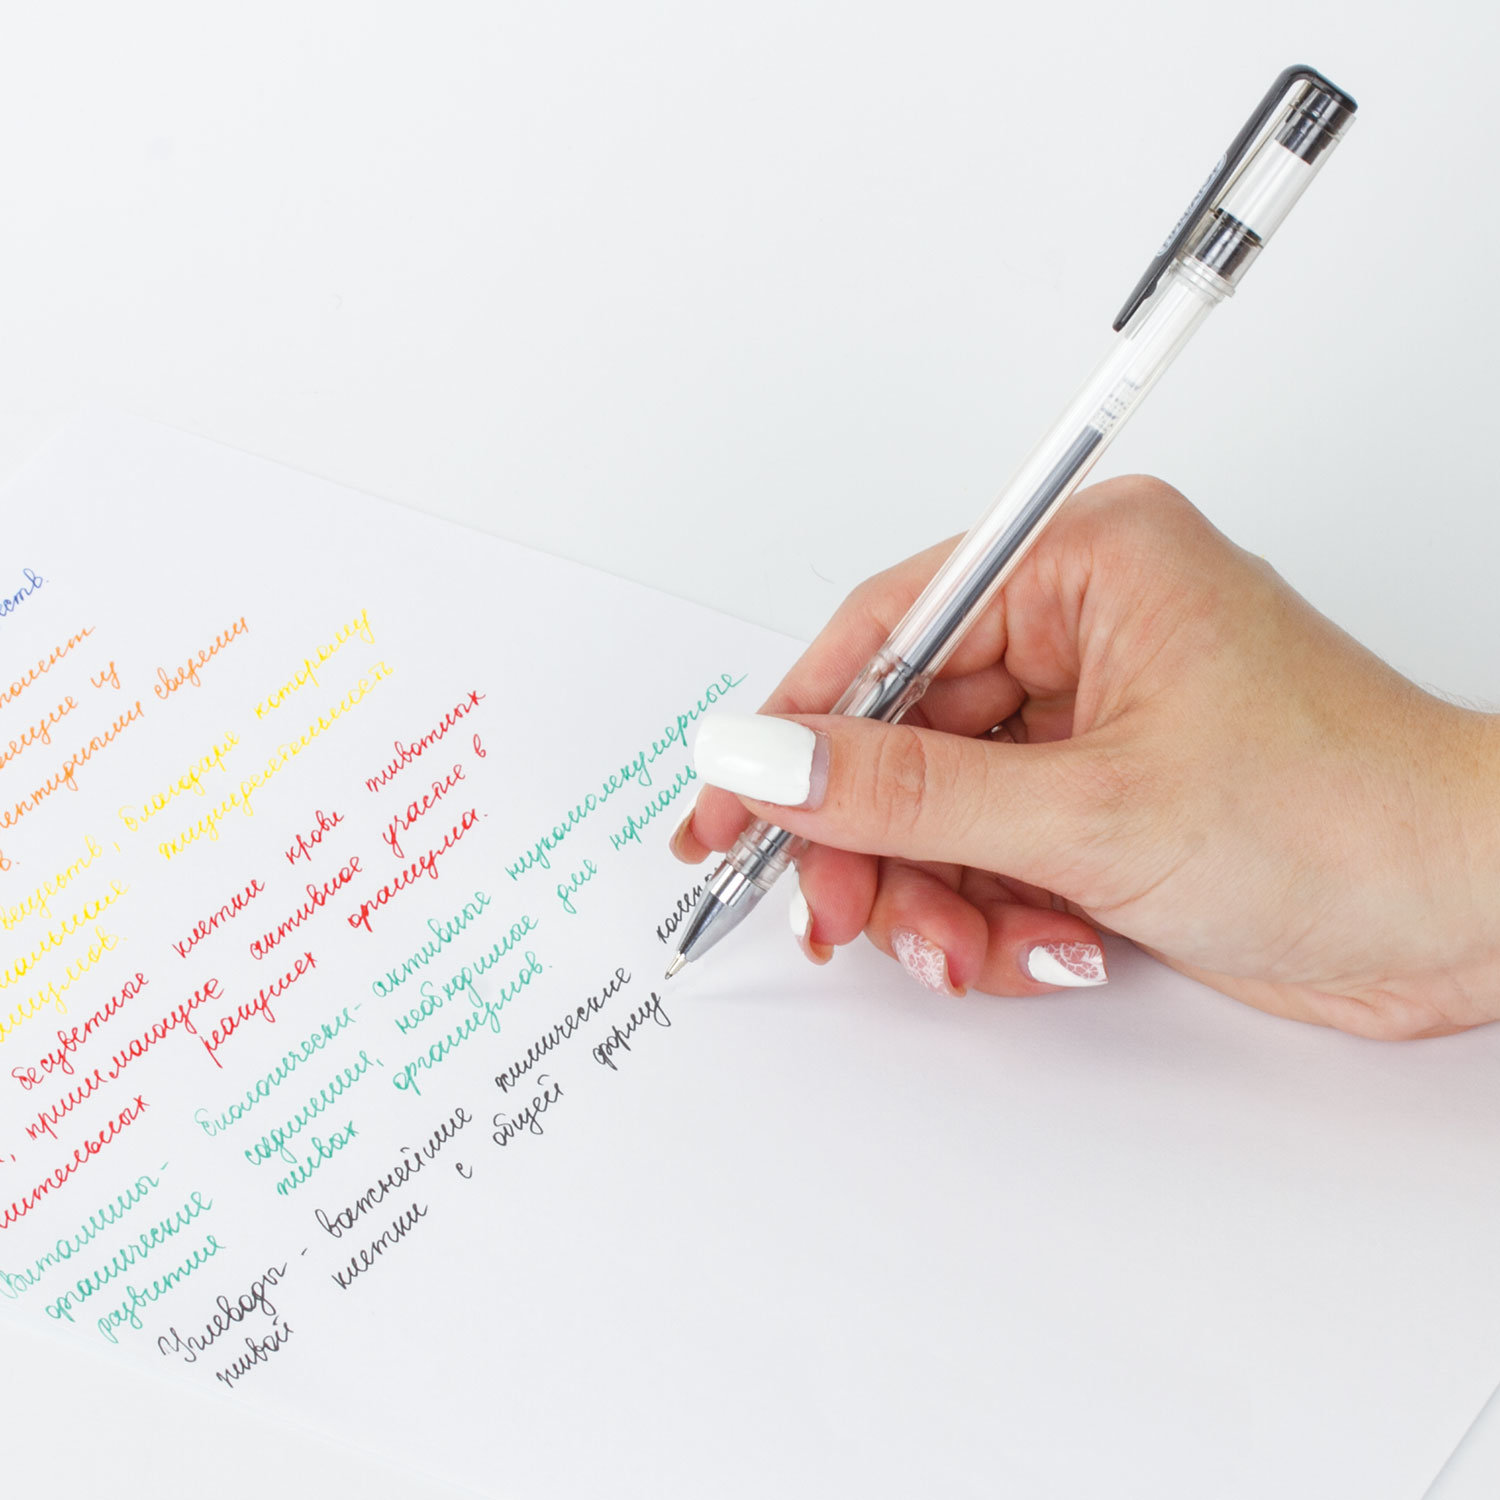 еств.
понент
ящие из
пептидными связями
в.
веществ, благодаря которому
жизнедеятельность
бесцветные клетки крови животных
, принимающие активное участие в
реакциях организма.
Витамины- биологически-активные низкомолекулярные
органические соединения, необходимые для нормаль
развития живых организмов.
Углеводы - важнейшие химические комп
живой клетки с общей форму